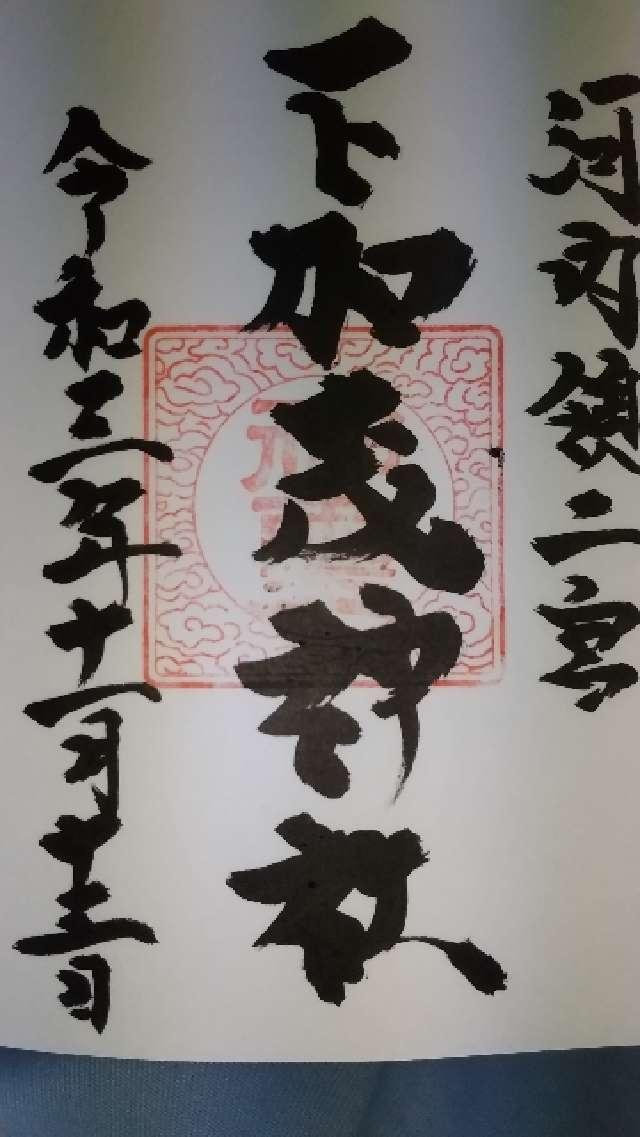 河内領二宮
下加茂神社
令和三年十一月十三日